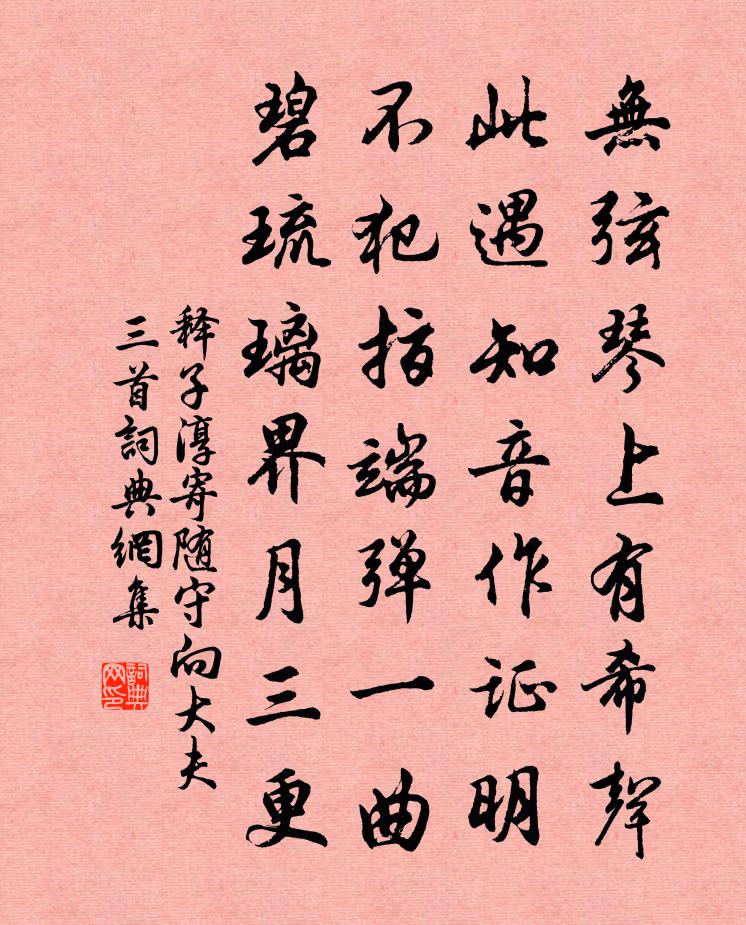 無弦琴上有希聲
此遇知音作证明
不犯指端弹一曲
碧琉璃界月三更
释子淳寄随守向大夫
三首詞典網集
詞典
网印